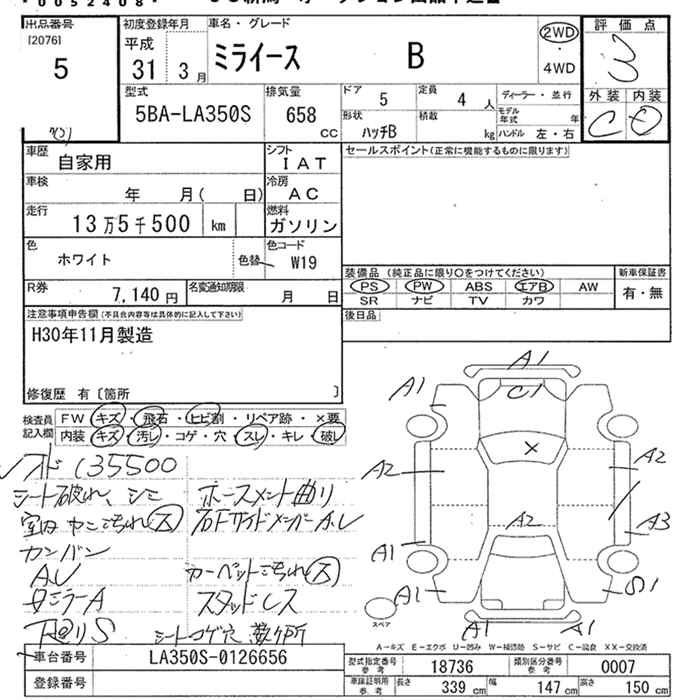 出品番号 初度登録年月 車名・グレード 評価点
[2076] 平成
5 31 3月 ミライース B 2WD ・ 4WD 3
型式 排気量 ドア 定員 ディーラー・並行 外装 内装
5BA-LA350S 658 cc 5 4 人 モデル年式 年 C D
形状 積載
ハッチB kg ハンドル 左・右
車歴 シフト セールスポイント(正常に機能するものに限ります)
自家用 IAT
車検 冷房
年 月( 日) AC
走行 燃料
13万5千500 km ガソリン
色 色コード
ホワイト 色替 W19
装備品(純正品に限り○をつけてください) 新車保証書
R券 名変通知期限 PS PW ABS エアB AW 有・無
7,140円 月 日 SR ナビ TV カワ
注意事項申告欄(不具合内容等は具体的に記入して下さい) 後日品
H30年11月製造
修復歴 有〔箇所 〕
検査員記入欄 FW キズ・飛石・ヒビ割・リペア跡・×要
内装 キズ・汚レ・コゲ・穴・スレ・キレ・破レ
135500
シート破れ、シミ ホースメント曲り
室内ヤニ汚れ(大) 右Fサイドメンバー A.U
カンバン
A.U カーペット汚れ(大)
ミラーA スタッドレス
下廻りS シートコゲ穴 数ケ所
A1
A1 C1 A1
×
A2 A2
A2 A3
A1
A1 S1
スペア A1 A1
A-キズ E-エクボ U-凹み W-補修跡 S-サビ C-腐食 XX-交換済
車台番号 LA350S-0126656 型式指定番号 参考 18736 類別区分番号 参考 0007
登録番号 車庫証明用 参考 長さ 339 cm 幅 147 cm 高さ 150 cm